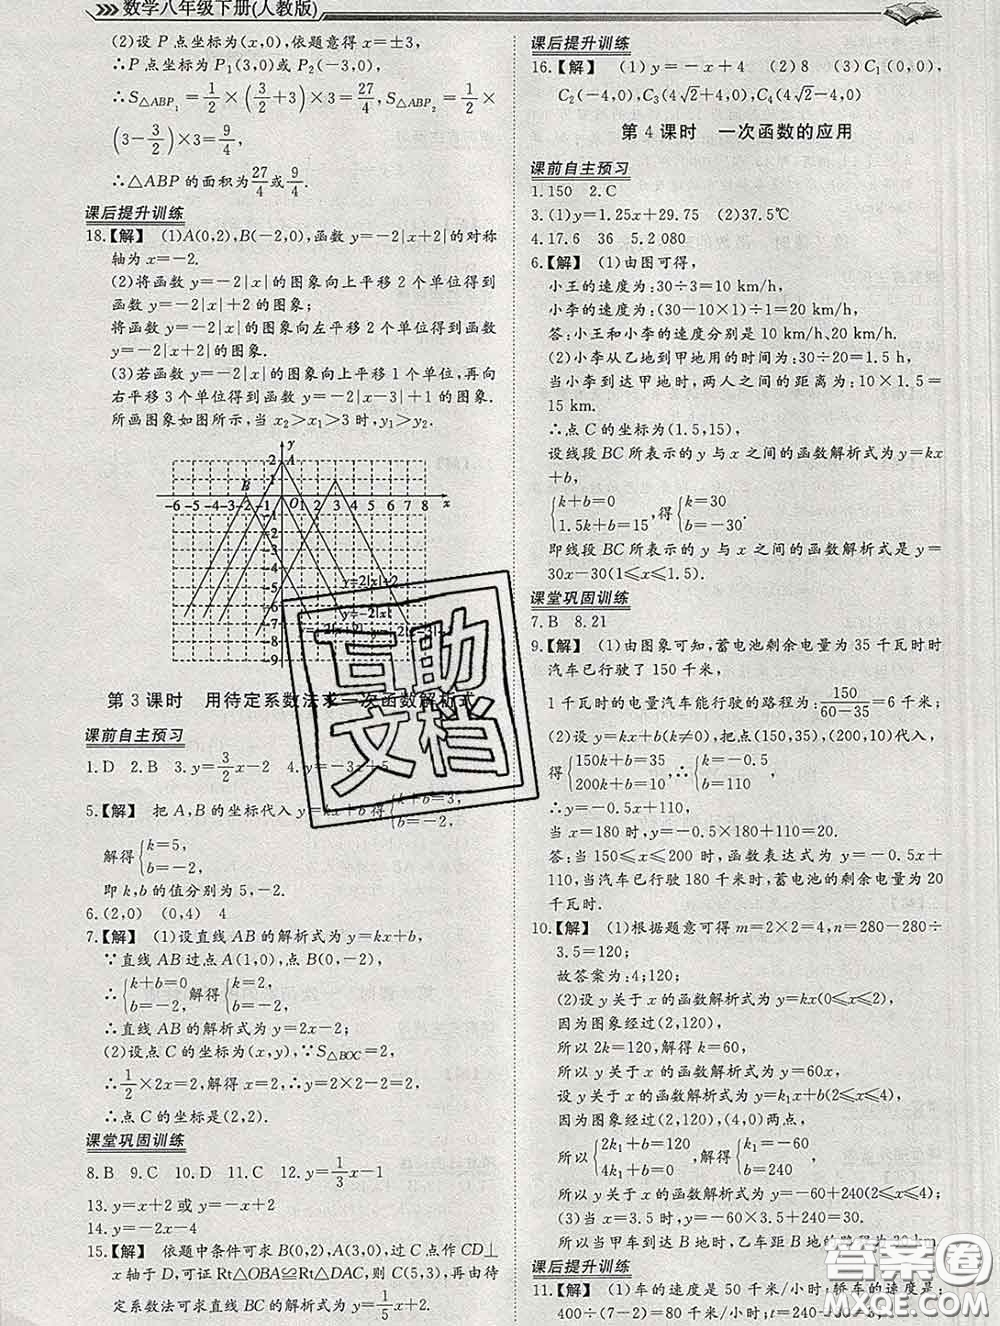 数学八年级下册(人教版)
(2)设 P 点坐标为(x,0),依题意得 x=±3,
∴P 点坐标为 P₁(3,0)或 P₂(-3,0),
∴S△ABP₁=1/2×(3/2+3)×3=27/4,S△ABP₂=1/2×
(3-3/2)×3=9/4,
∴△ABP 的面积为27/4或9/4.
课后提升训练
18.【解】 (1)A(0,2),B(-2,0),函数 y=-2|x+2|的对称
轴为 x=-2.
(2)将函数 y=-2|x|的图象向上平移 2 个单位得到
函数 y=-2|x|+2 的图象;
将函数 y=-2|x|的图象向左平移 2 个单位得到函数
y=-2|x+2|的图象.
(3)若函数 y=-2|x|的图象向上平移 1 个单位,再向
右平移 3 个单位得到函数 y=-2|x-3|+1 的图象.
所画图象如图所示,当 x₂>x₁>3 时,y₁>y₂.
y
2 A
1
B O
-6 -5 -4 -3 -2 -1 1 2 3 4 5 6 7 8 x
y=-2|x|+2
y=-2|x|
第 3 课时 用待定系数法求一次函数解析式
课前自主预习
1.D 2.B 3.y=3/2x-2
5.【解】 把 A,B 的坐标代入 y=kx+b 得{k+b=3, b=-2,
解得{k=5, b=-2,
即 k,b 的值分别为 5,-2.
6.(2,0) (0,4) 4
7.【解】 (1)设直线 AB 的解析式为 y=kx+b,
∵直线 AB 过点 A(1,0),点 B(0,-2),
∴{k+b=0 b=-2 解得{k=2 b=-2,
∴直线 AB 的解析式为 y=2x-2;
(2)设点 C 的坐标为(x,y),∵S△BOC=2,
∴1/2×2x=2,解得 x=2,∴y=2×2-2=2,
∴点 C 的坐标是(2,2).
课堂巩固训练
8.B 9.C 10.D 11.C 12.y=1/3x-1
13.y=x+2 或 y=-x+2
14.y=-2x-4
15.【解】 依题中条件可求 B(0,2),A(3,0),过 C 点作 CD⊥
x 轴于 D,可证 Rt△OBA≌Rt△DAC,则 C(5,3),再由待
定系数法可求直线 BC 的解析式为 y=1/5x+2.
课后提升训练
16.【解】 (1)y=-x+4 (2)8 (3)C₁(0,0),
C₂(-4,0),C₃(4√2+4,0),C₄(4√2-4,0)
第 4 课时 一次函数的应用
课前自主预习
1.150 2.C
3.(1)y=1.25x+29.75 (2)37.5℃
4.17.6 36 5.2 080
6.【解】 (1)由图可得,
小王的速度为:30÷3=10 km/h,
小李的速度为:(30-10×1)÷1=20 km/h,
答:小王和小李的速度分别是 10 km/h、20 km/h.
(2)小李从乙地到甲地用的时间为:30÷20=1.5 h,
当小李到达甲地时,两人之间的距离为:10×1.5=
15 km.
∴点 C 的坐标为(1.5,15),
设线段 BC 所表示的 y 与 x 之间的函数解析式为 y=kx
+b,
{k+b=0 1.5k+b=15,得{k=30 b=-30.
即线段 BC 所表示的 y 与 x 之间的函数解析式是 y=
30x-30(1≤x≤1.5).
课堂巩固训练
7.B 8.21
9.【解】 (1)由图象可知,蓄电池剩余电量为 35 千瓦时时
汽车已行驶了 150 千米,
1 千瓦时的电量汽车能行驶的路程为:150/(60-35)=6 千米;
(2)设 y=kx+b(k≠0),把点(150,35),(200,10)代入,
得{150k+b=35 200k+b=10,∴{k=-0.5 b=110,
∴y=-0.5x+110,
当 x=180 时,y=-0.5×180+110=20.
答:当 150≤x≤200 时,函数表达式为 y=-0.5x+
110,当汽车已行驶 180 千米时,蓄电池的剩余电量为 20
千瓦时.
10.【解】 (1)根据题意可得 m=2×2=4,n=280-280÷
3.5=120;
故答案为:4;120;
(2)设 y 关于 x 的函数解析式为 y=kx(0≤x≤2),
因为图象经过(2,120),
所以 2k=120,解得 k=60,
所以 y 关于 x 的函数解析式为 y=60x,
设 y 关于 x 的函数解析式为 y=k₁x+b(2≤x≤4),
因为图象经过(2,120),(4,0)两点,
所以{2k₁+b=120 4k₁+b=0,解得{k₁=-60 b=240,
所以 y 关于 x 的函数解析式为 y=-60x+240(2≤x≤4);
(3)当 x=3.5 时,y=-60×3.5+240=30.
所以当甲车到达 B 地时,乙车距 B 地的路程为
课后提升训练
11.【解】 (1)车的速度是 50 千米/小时;轿车的速度是:
400÷(7-2)=80 千米/小时;t=240
互助文档
答案圈
MXQE.COM